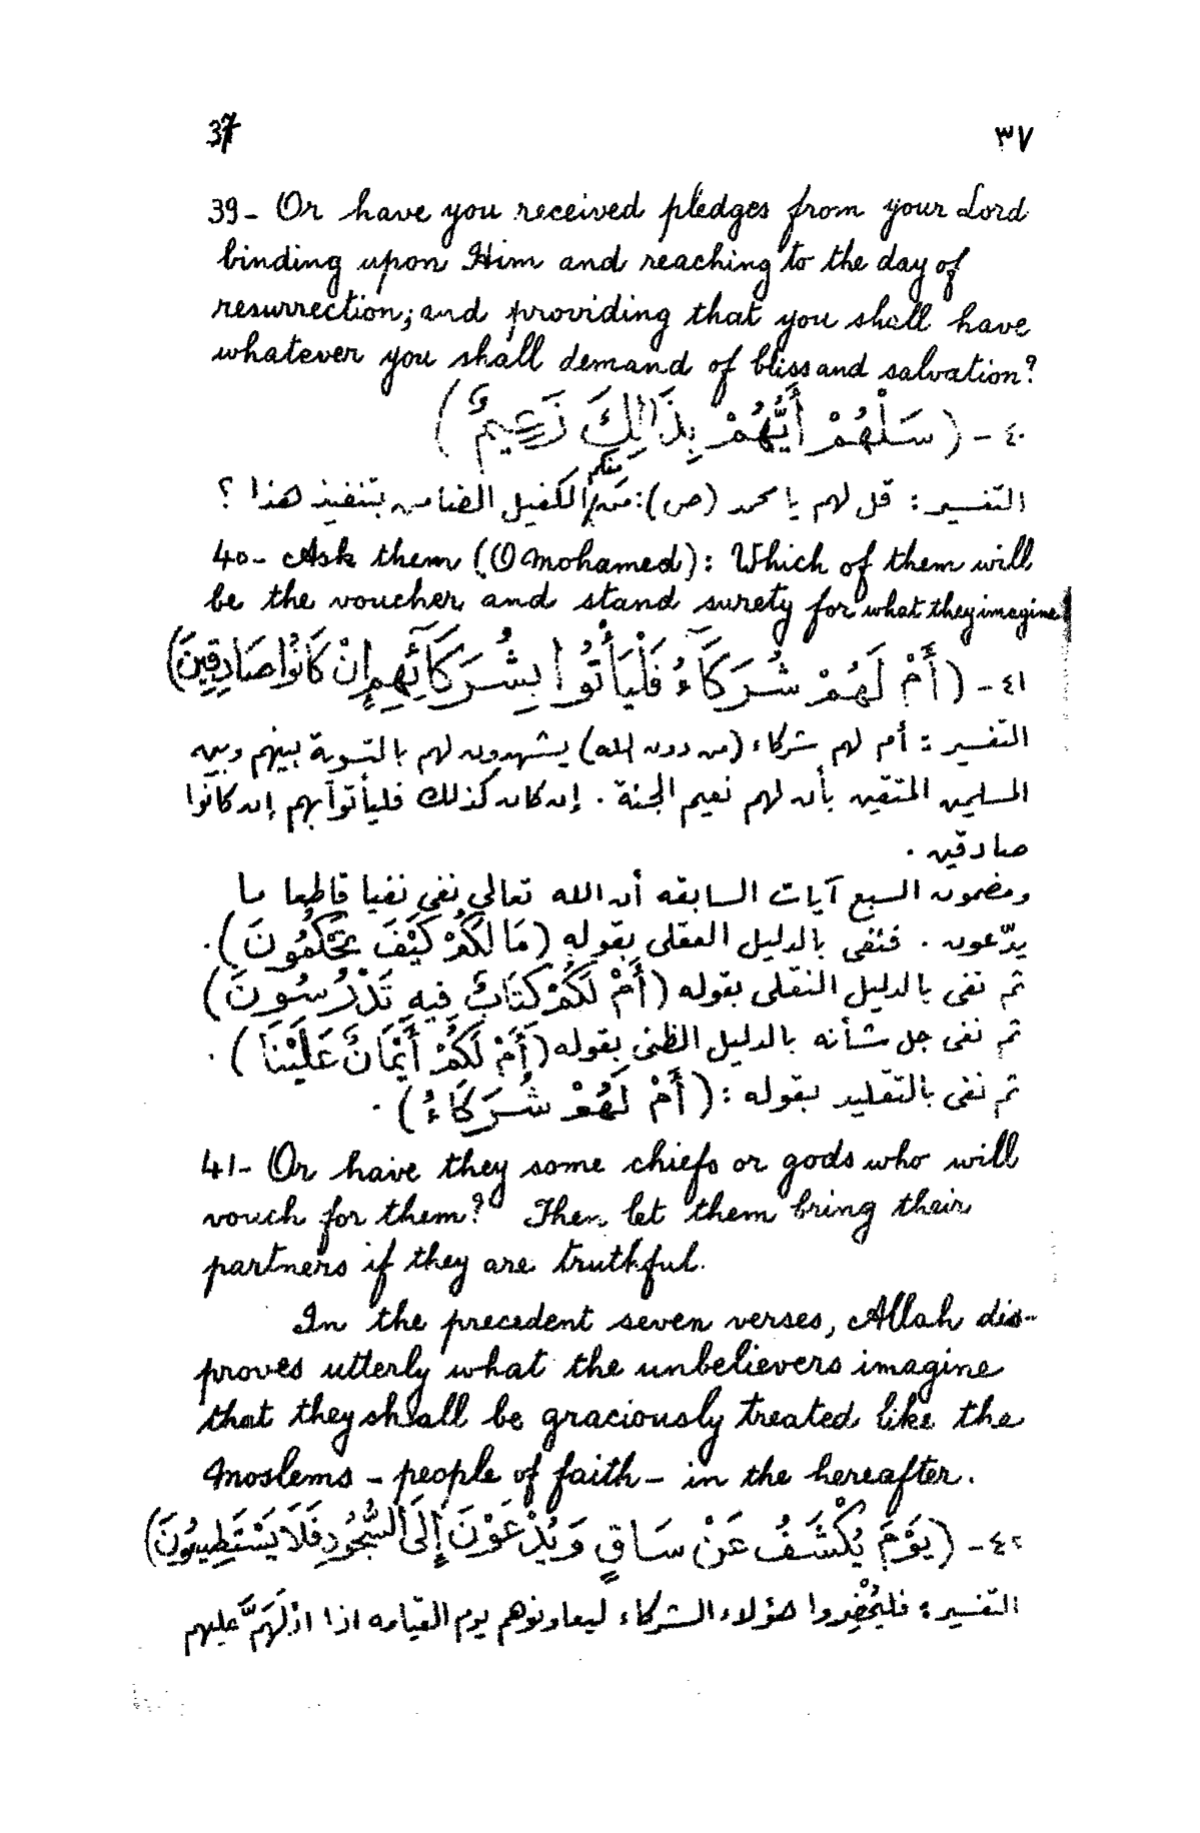 37 ٣٧
39- Or have you received pledges from your Lord
binding upon Him and reaching to the day of
resurrection; and providing that you shall have
whatever you shall demand of bliss and salvation?
٤٠ - (سَلْهُمْ أَيُّهُمْ بِذَالِكَ زَعِيمٌ)
التفسير: قل لهم يا محمد (ص): من منكم الكفيل الضامن بتنفيذ هذا ؟
40- Ask them (O Mohamed): Which of them will
be the voucher and stand surety for what they imagine
٤١ - (أَمْ لَهُمْ شُرَكَآءُ فَلْيَأْتُوا بِشُرَكَآئِهِم إِنْ كَانُوا صَادِقِينَ)
التفسير: أم لهم شركاء (من دون الله) يشهدون لهم بالتسوية بينهم وبين
المسلمين المتقين بأن لهم نعيم الجنة . إن كان كذلك فليأتوا بهم إن كانوا
صادقين .
ومضمون السبع آيات السابقه أن الله تعالى نفى نفيا قاطعا ما
يدّعون . فنفى بالدليل العقلى بقوله (مَا لَكُمْ كَيْفَ تَحْكُمُونَ) .
ثم نفى بالدليل النقلى بقوله (أَمْ لَكُمْ كِتَابٌ فِيهِ تَدْرُسُونَ)
ثم نفى جل شأنه بالدليل الظنى بقوله (أَمْ لَكُمْ أَيْمَانٌ عَلَيْنَا) .
ثم نفى بالتقليد بقوله : (أَمْ لَهُمْ شُرَكَاءُ) .
41- Or have they some chiefs or gods who will
vouch for them? Then let them bring their
partners if they are truthful.
In the precedent seven verses, Allah dis-
proves utterly what the unbelievers imagine
that they shall be graciously treated like the
Moslems - people of faith - in the hereafter.
٤٢ - (يَوْمَ يُكْشَفُ عَنْ سَاقٍ وَيُدْعَوْنَ إِلَى السُّجُودِ فَلَا يَسْتَطِيعُونَ)
التفسير: فليُحْضِروا هؤلاء الشركاء ليعاونوهم يوم القيامه اذا ادْلَهَمَّ عليهم